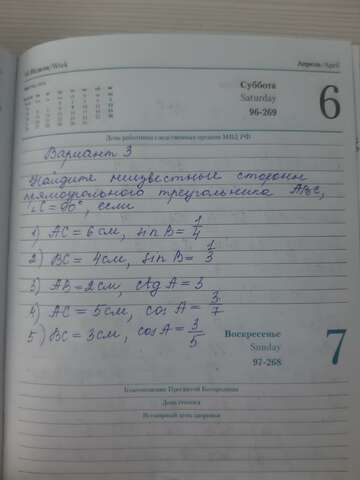 14 Неделя/Week
Апрель/April
Суббота
Saturday
96-269
6
День работника следственных органов МВД РФ
Вариант 3
Найдите неизвестные стороны
прямоугольного треугольника ABC,
∠C = 90°, если
1) AC = 6 см, sin B = 1/4
2) BC = 4 см, sin B = 1/3
3) AB = 2 см, ctg A = 3
4) AC = 5 см, cos A = 3/7
5) BC = 3 см, cos A = 3/5
Воскресенье
Sunday
97-268
7
Благовещение Пресвятой Богородицы
День геолога
Всемирный день здоровья